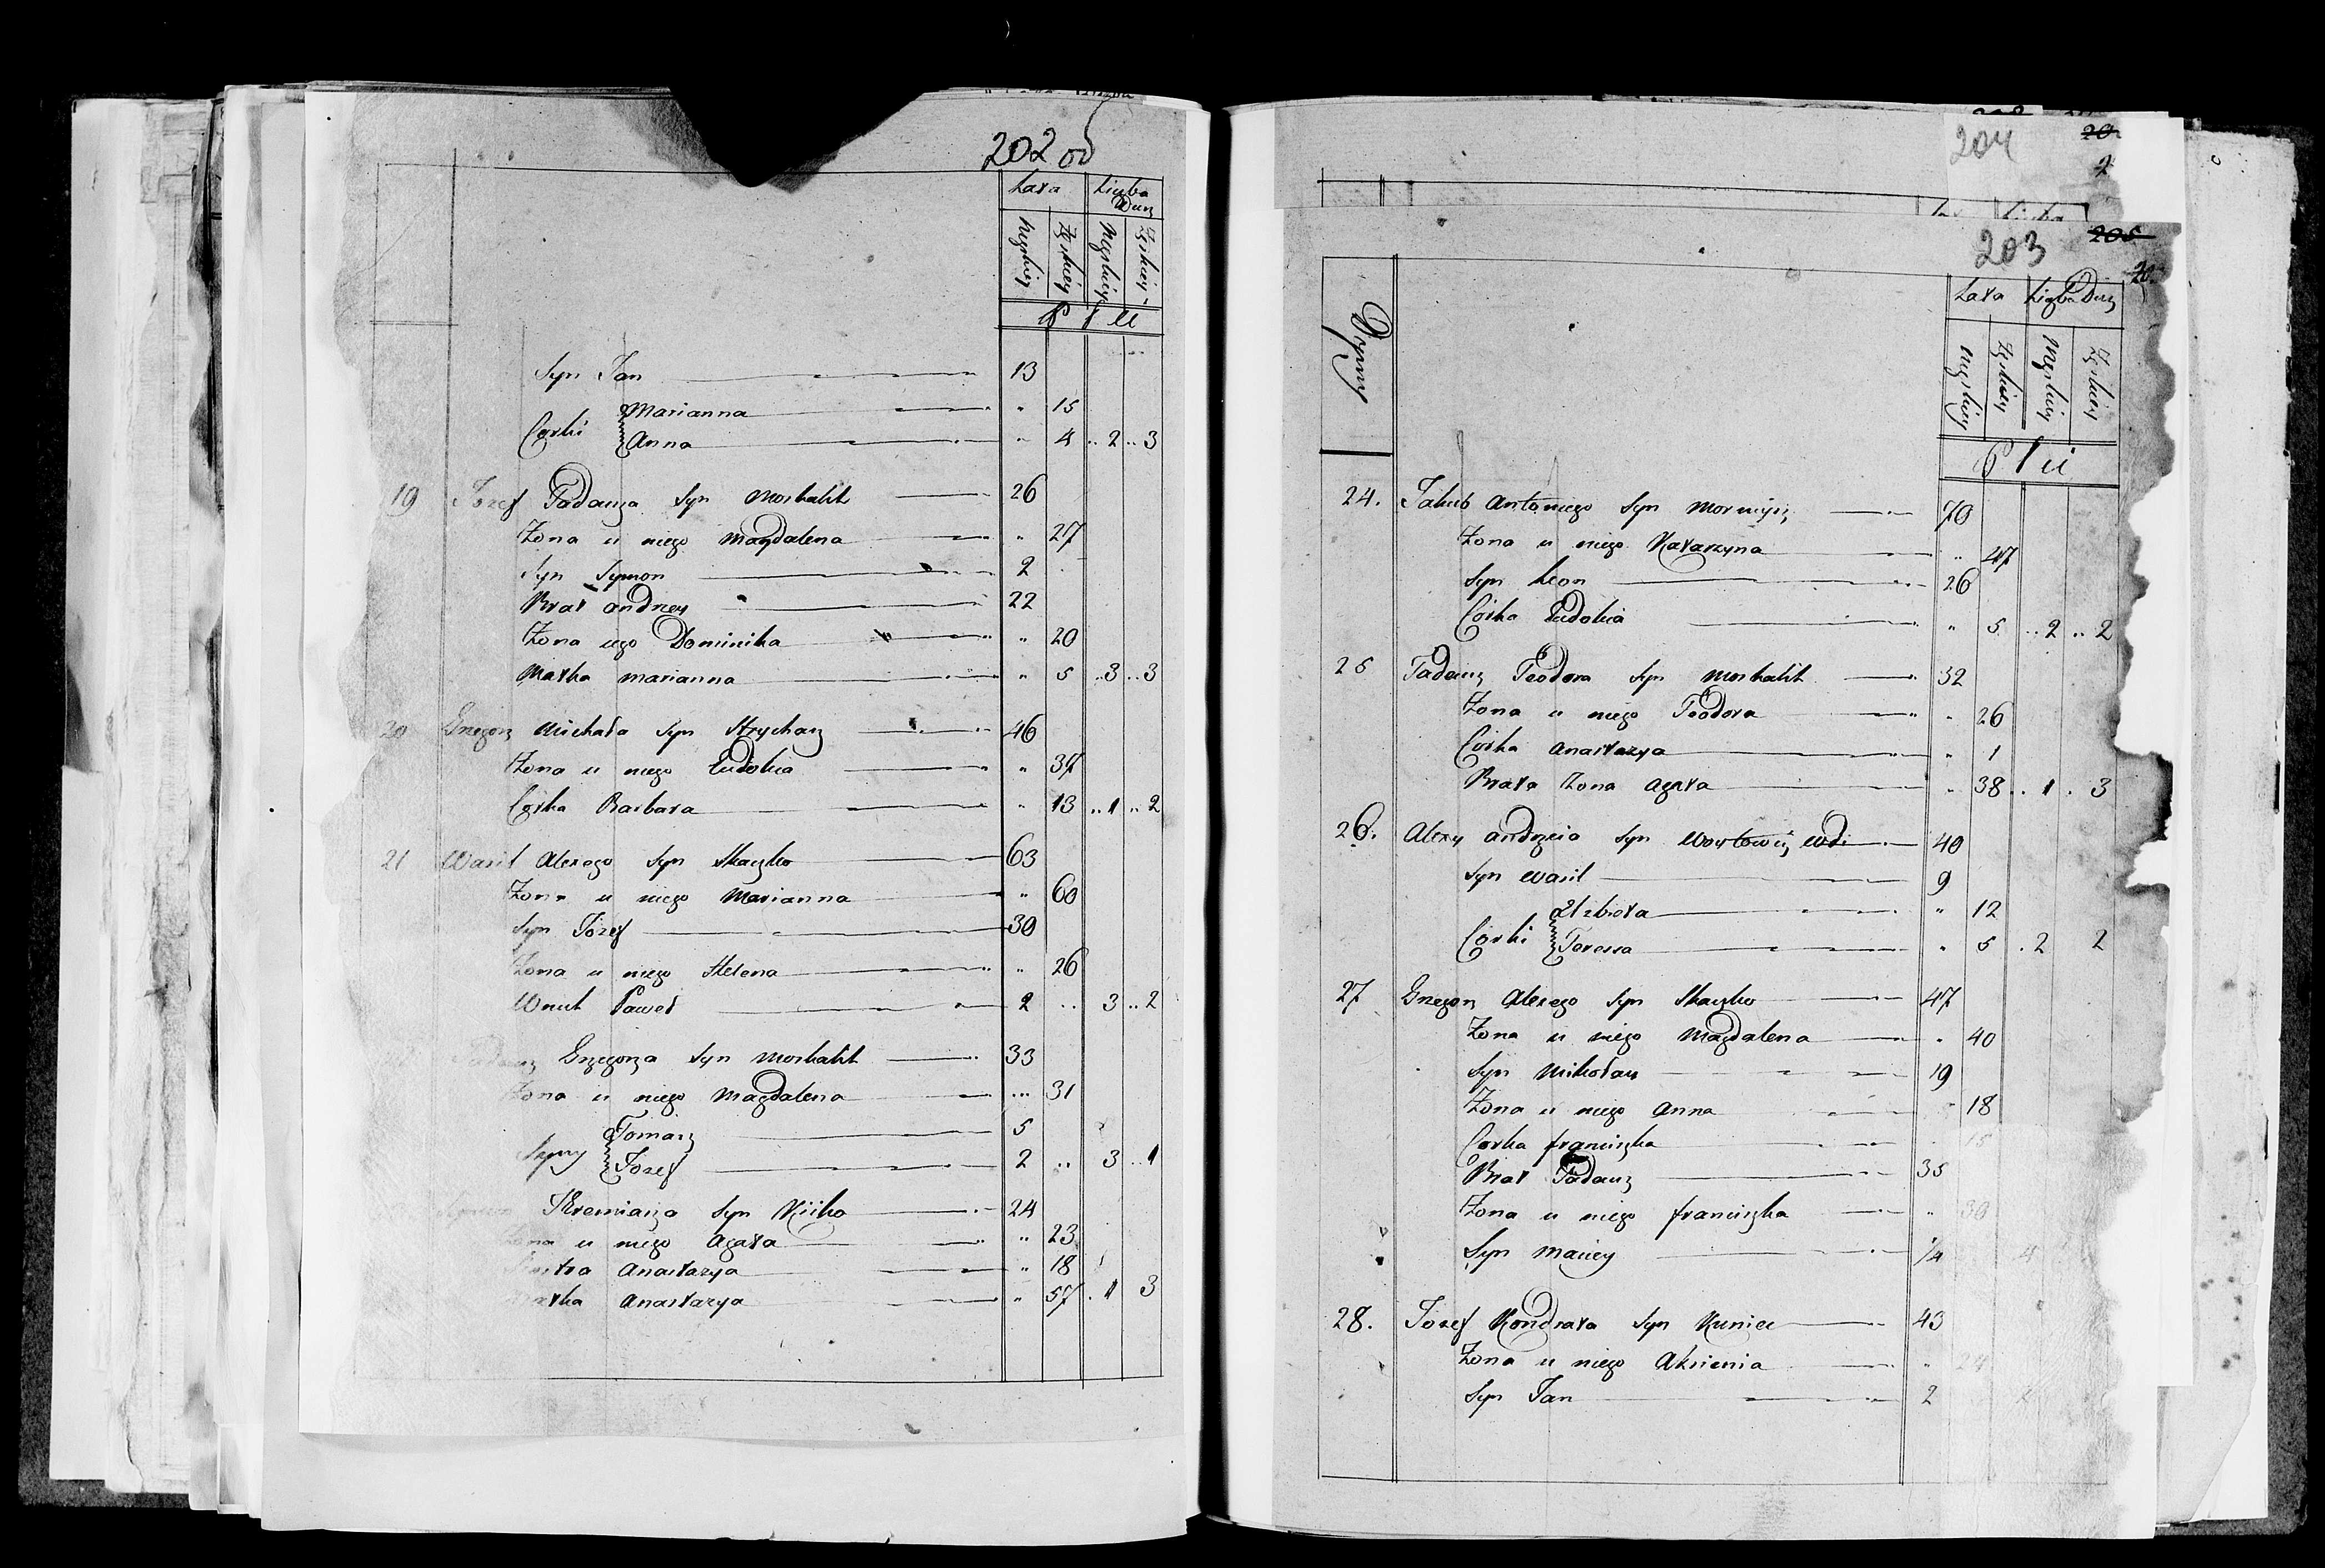 202 об
Lata Liczba Dusz
Męzkiey Zęskiey Męzkiey Zęskiey
Syn Jan 13
Corki Marianna " 15
Anna " 4 .. 2 .. 3
19 Jozef Tadeusza Syn Moskalik 26
Zona u niego Magdalena " 27
Syn Symon 2
Brat Andrzey 22
Zona iego Dominika " 20
Matka Marianna " 5 .. 3 .. 3
20 Grzegorz Michała Syn Strycharz 46
Zona u niego Eudokia " 37
Corka Barbara " 13 .. 1 .. 2
21 Wasil Alexego Syn Skaczko 63
Zona u niego Marianna " 60
Syn Jozef 30
Zona u niego Helena " 26
Wnuk Paweł 2 .. 3 .. 2
Tadeusz Grzegorza Syn Moskalik 33
Zona u niego Magdalena ... 31
Syny Tomasz 5
Jozef 2 .. 3 .. 1
Jeremiasza Syn 24
Zona u niego Agata " 23
Siostra Anastazya " 18
Matka Anastazya " 57 . 1 3
204
203
205
Dymy
Lata Liczba Dusz
Męzkiey Zęskiey Męzkiey Zęskiey
24. Jakub Antoniego Syn 70
Zona u niego Katarzyna " 47
Syn Leon 26
Corka Eudokia " 5 .. 2 .. 2
25 Tadeusz Teodora Syn Moskalik 32
Zona u niego Teodora " 26
Corka Anastazya " 1
Brata Zona Agata " 38 .. 1 . 3
26. Alexy Andrzeia Syn Woytowicz Wd. 40
Syn Wasil 9
Corki Elzbieta " 12
Teressa " 5 . 2 2
27 Grzegorz Alexego Syn Skaczko 47
Zona u niego Magdalena " 40
Syn Mikołay 19
Zona u niego Anna " 18
Corka Franciszka 15
Brat Tadeusz 35
Zona u niego Franciszka " 30
Syn Maciey 1/4 4
28. Jozef Kondrata Syn Kuniec 43
Zona u niego Aksienia " 24
Syn Jan 2